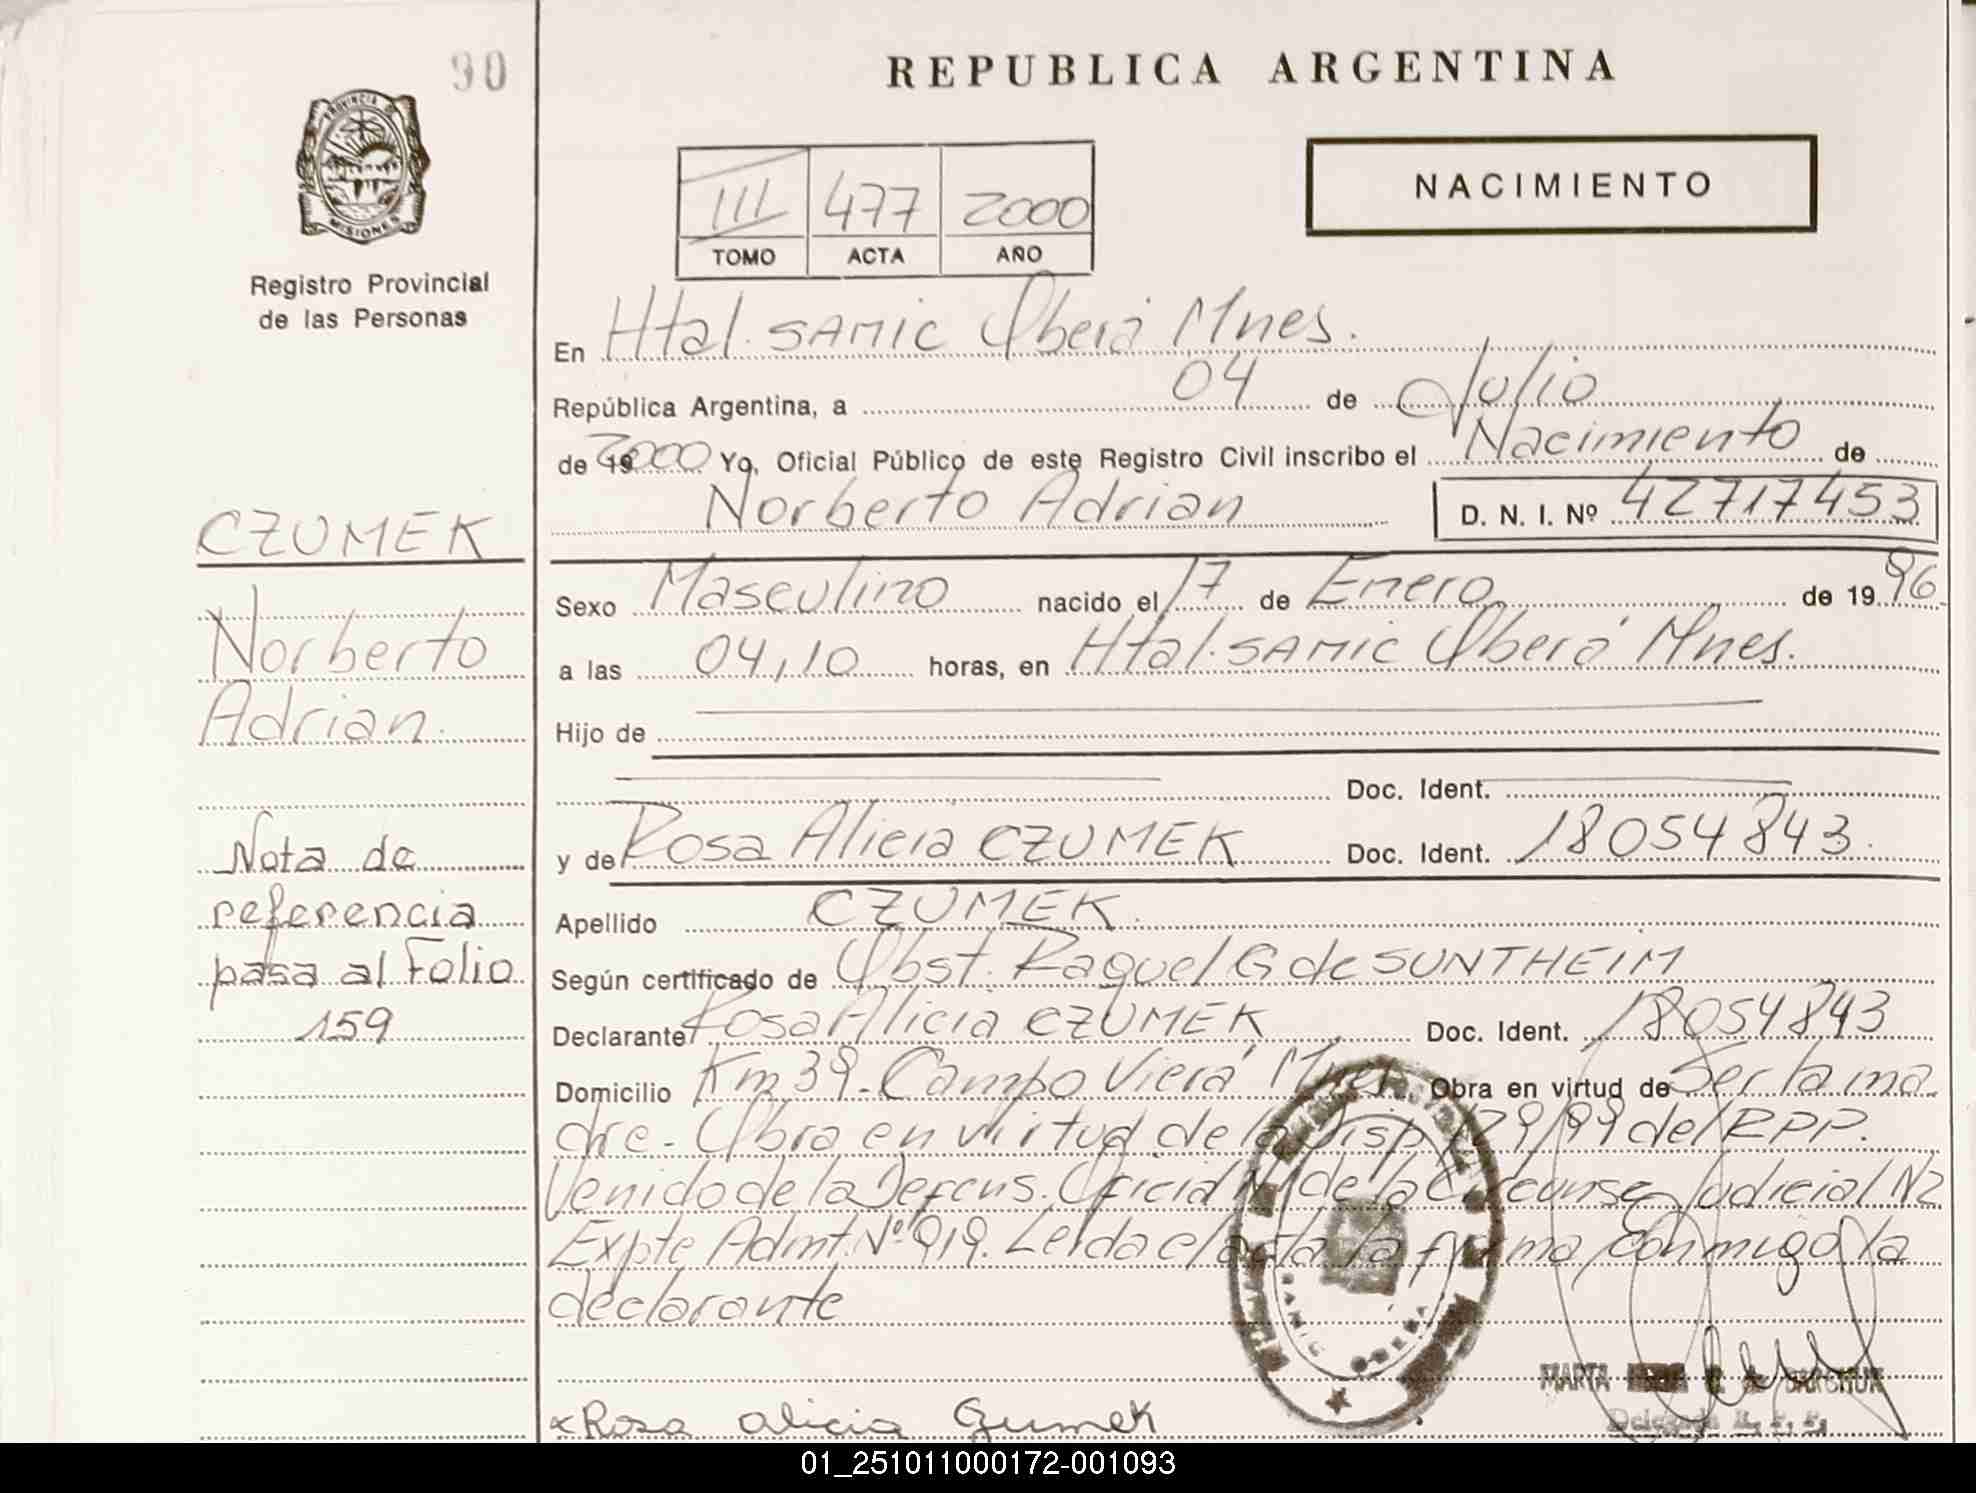 90
REPUBLICA ARGENTINA
PROVINCIA DE
MISIONES
Registro Provincial
de las Personas
III 477 2000
TOMO ACTA AÑO
NACIMIENTO
En Htal. SAMIC Oberá Mnes.
República Argentina, a 04 de Julio
de 19 2000 Yo, Oficial Público de este Registro Civil inscribo el Nacimiento de
Norberto Adrian D. N. I. Nº 42717453
CZUMEK
Norberto
Adrian.
Sexo Masculino nacido el 17 de Enero de 19 96
a las 04,10 horas, en Htal. SAMIC Oberá Mnes.
Hijo de
Doc. Ident.
y de Rosa Alicia CZUMEK Doc. Ident. 18054843.
Nota de
referencia
pasa al Folio
159
Apellido CZUMEK.
Según certificado de Obst. Raquel G de SUNTHEIM
Declarante Rosa Alicia CZUMEK Doc. Ident. 18054843
Domicilio Km 39 - Campo Viera Mnes Obra en virtud de Ser la ma
dre - Obra en virtud de la Disp 129/99 del RPP.
Venido de la Defens. Oficial N1 de la Circunsc Judicial N2
Expte Admt. Nº 919. Leida el acta la firma conmigo la
declarante
SAMIC OBERA
x Rosa alicia Czumek
MARTA
Delegada R. P. P.
01_251011000172-001093